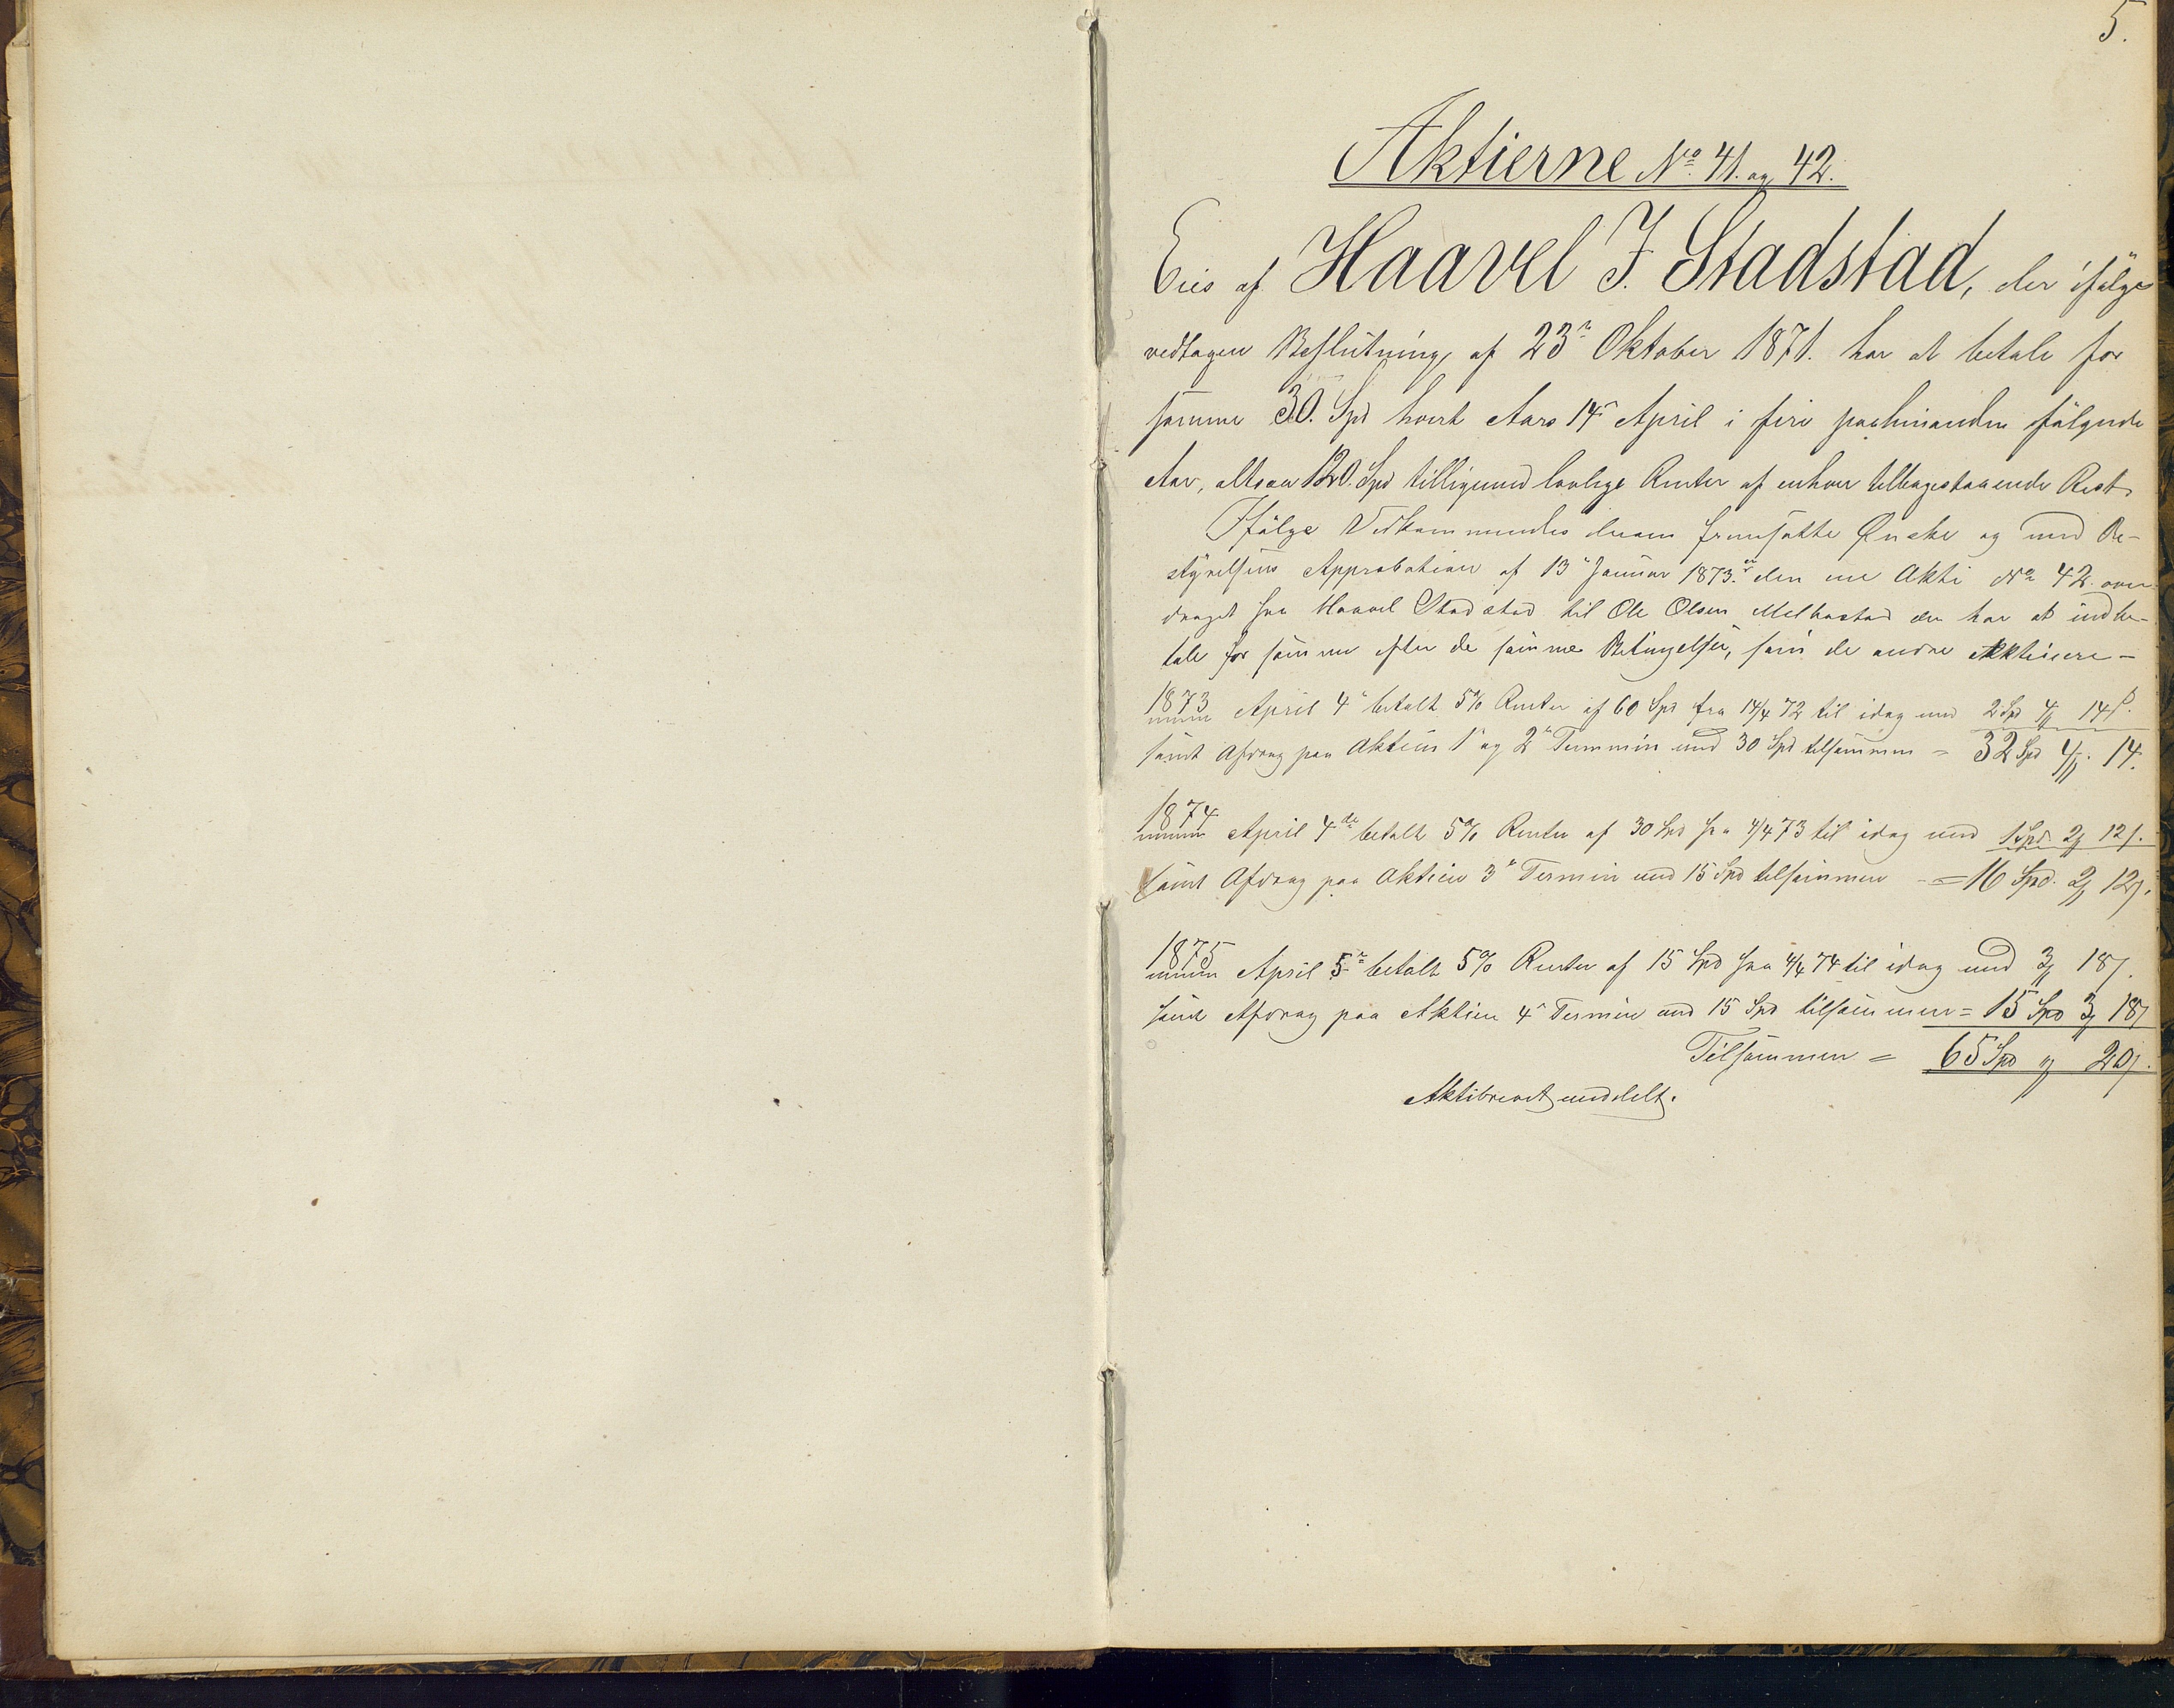 5.
Aktierne No. 41. og 42.
Eies af Haavel J. Stadstad, der ifølge
vedtagen Beslutning af 23de Oktober 1871. har at betale for
samme 30. Spd hvert Aars 14de April i fire paahinanden følgende
Aar, altsaa 120. Spd tilligemed lovlige Renter af enhver tilbagestaaende Rest.
Ifølge Vedkommendes derom fremsatte Ønske og med Be-
styrelsens Approbation af 13de Januar 1873. er den ene Aktie No 42. over-
draget fra Haavel Stadstad til Ole Olsen Melbostad der har at indbe-
tale for samme efter de samme Betingelser, som de andre Aktieiere -
1873 April 4de betalt 5% Renter af 60 Spd fra 14/4 72 til idag med 2 Spd 4 14 s.
samt Afdrag paa Aktiens 1te og 2den Termin med 30 Spd tilsammen = 32 Spd 4. 14.
1874 April 4de betalt 5% Renter af 30 Spd fra 4/4 73 til idag med 1 Spd 2 12 s.
samt Afdrag paa Aktien 3de Termin med 15 Spd tilsammen - = 16 Spd. 2 12 s.
1875 April 5te betalt 5% Renter af 15 Spd fra 4/4 74 til idag med 3 18 s.
samt Afdrag paa Aktien 4de Termin med 15 Spd tilsammen = 15 Spd 3 18 s
Tilsammen = 65 Spd " 20 s.
Aktiebrevet meddelt.